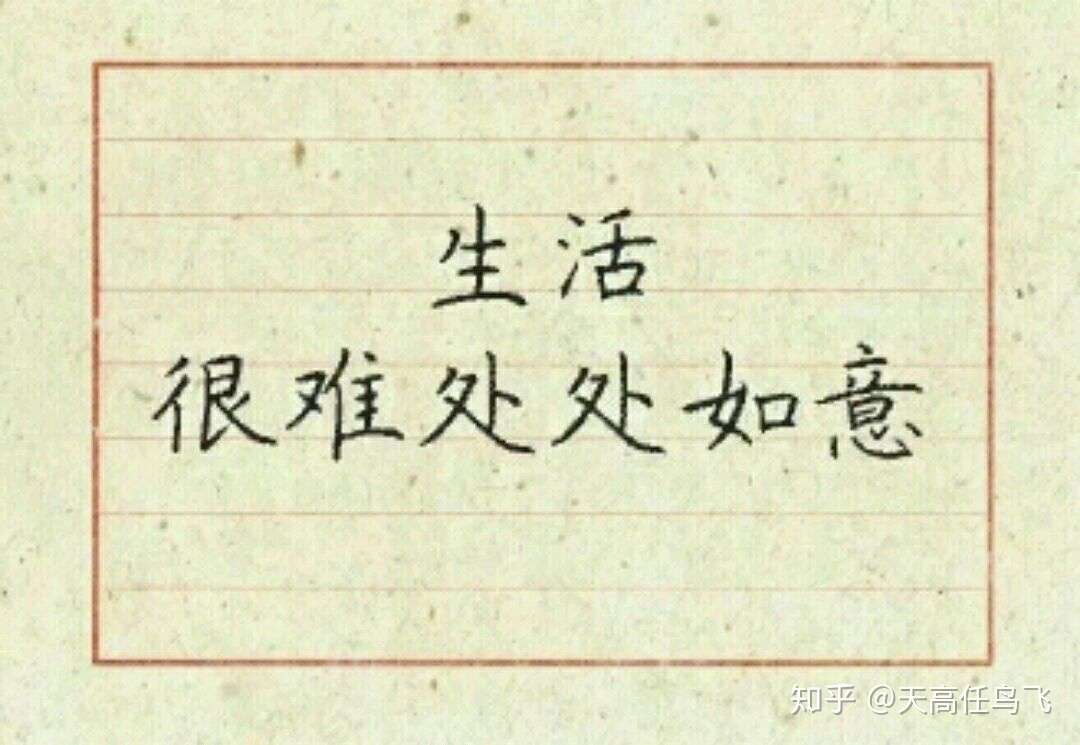 生活
很难处处如意
知乎 @天高任鸟飞